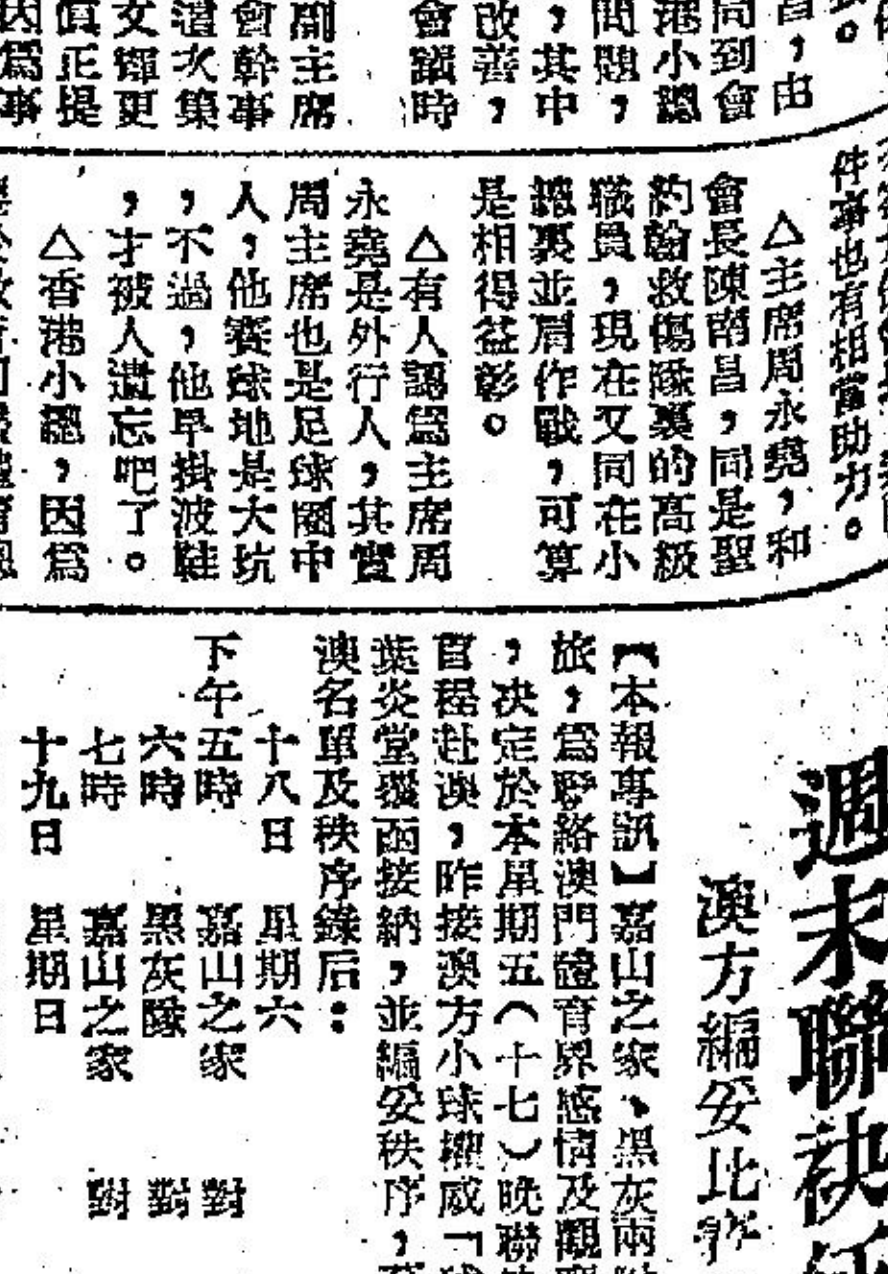 長。
昌，由
同到會
港小總
問題，
，其中
改善，
會議時
副主席
會幹事
遣次集
文輝更
真正提
因爲事
件事也有相當助力。
△主席周永堯，和
會長陳南昌，同是聖
約翰救傷隊裏的高級
職員，現在又同在小
總裏並肩作戰，可算
是相得益彰。
△有人認爲主席周
永堯是外行人，其實
周主席也是足球圈中
人，他賽球地是大坑
，不過，他早掛波鞋
，才被人遺忘吧了。
△香港小總，因爲
週末聯袂
澳方編妥比
【本報專訊】嘉山之家、黑灰兩
旅，爲聯絡澳門體育界感情及觀
，決定於本星期五（十七）晚聯
首程赴澳，昨接澳方小球權威「
葉炎堂覆函接納，並編妥秩序，
澳名單及秩序錄后：
十八日　星期六
下午五時　嘉山之家　對
六時　黑灰隊　對
七時　嘉山之家　對
十九日　星期日